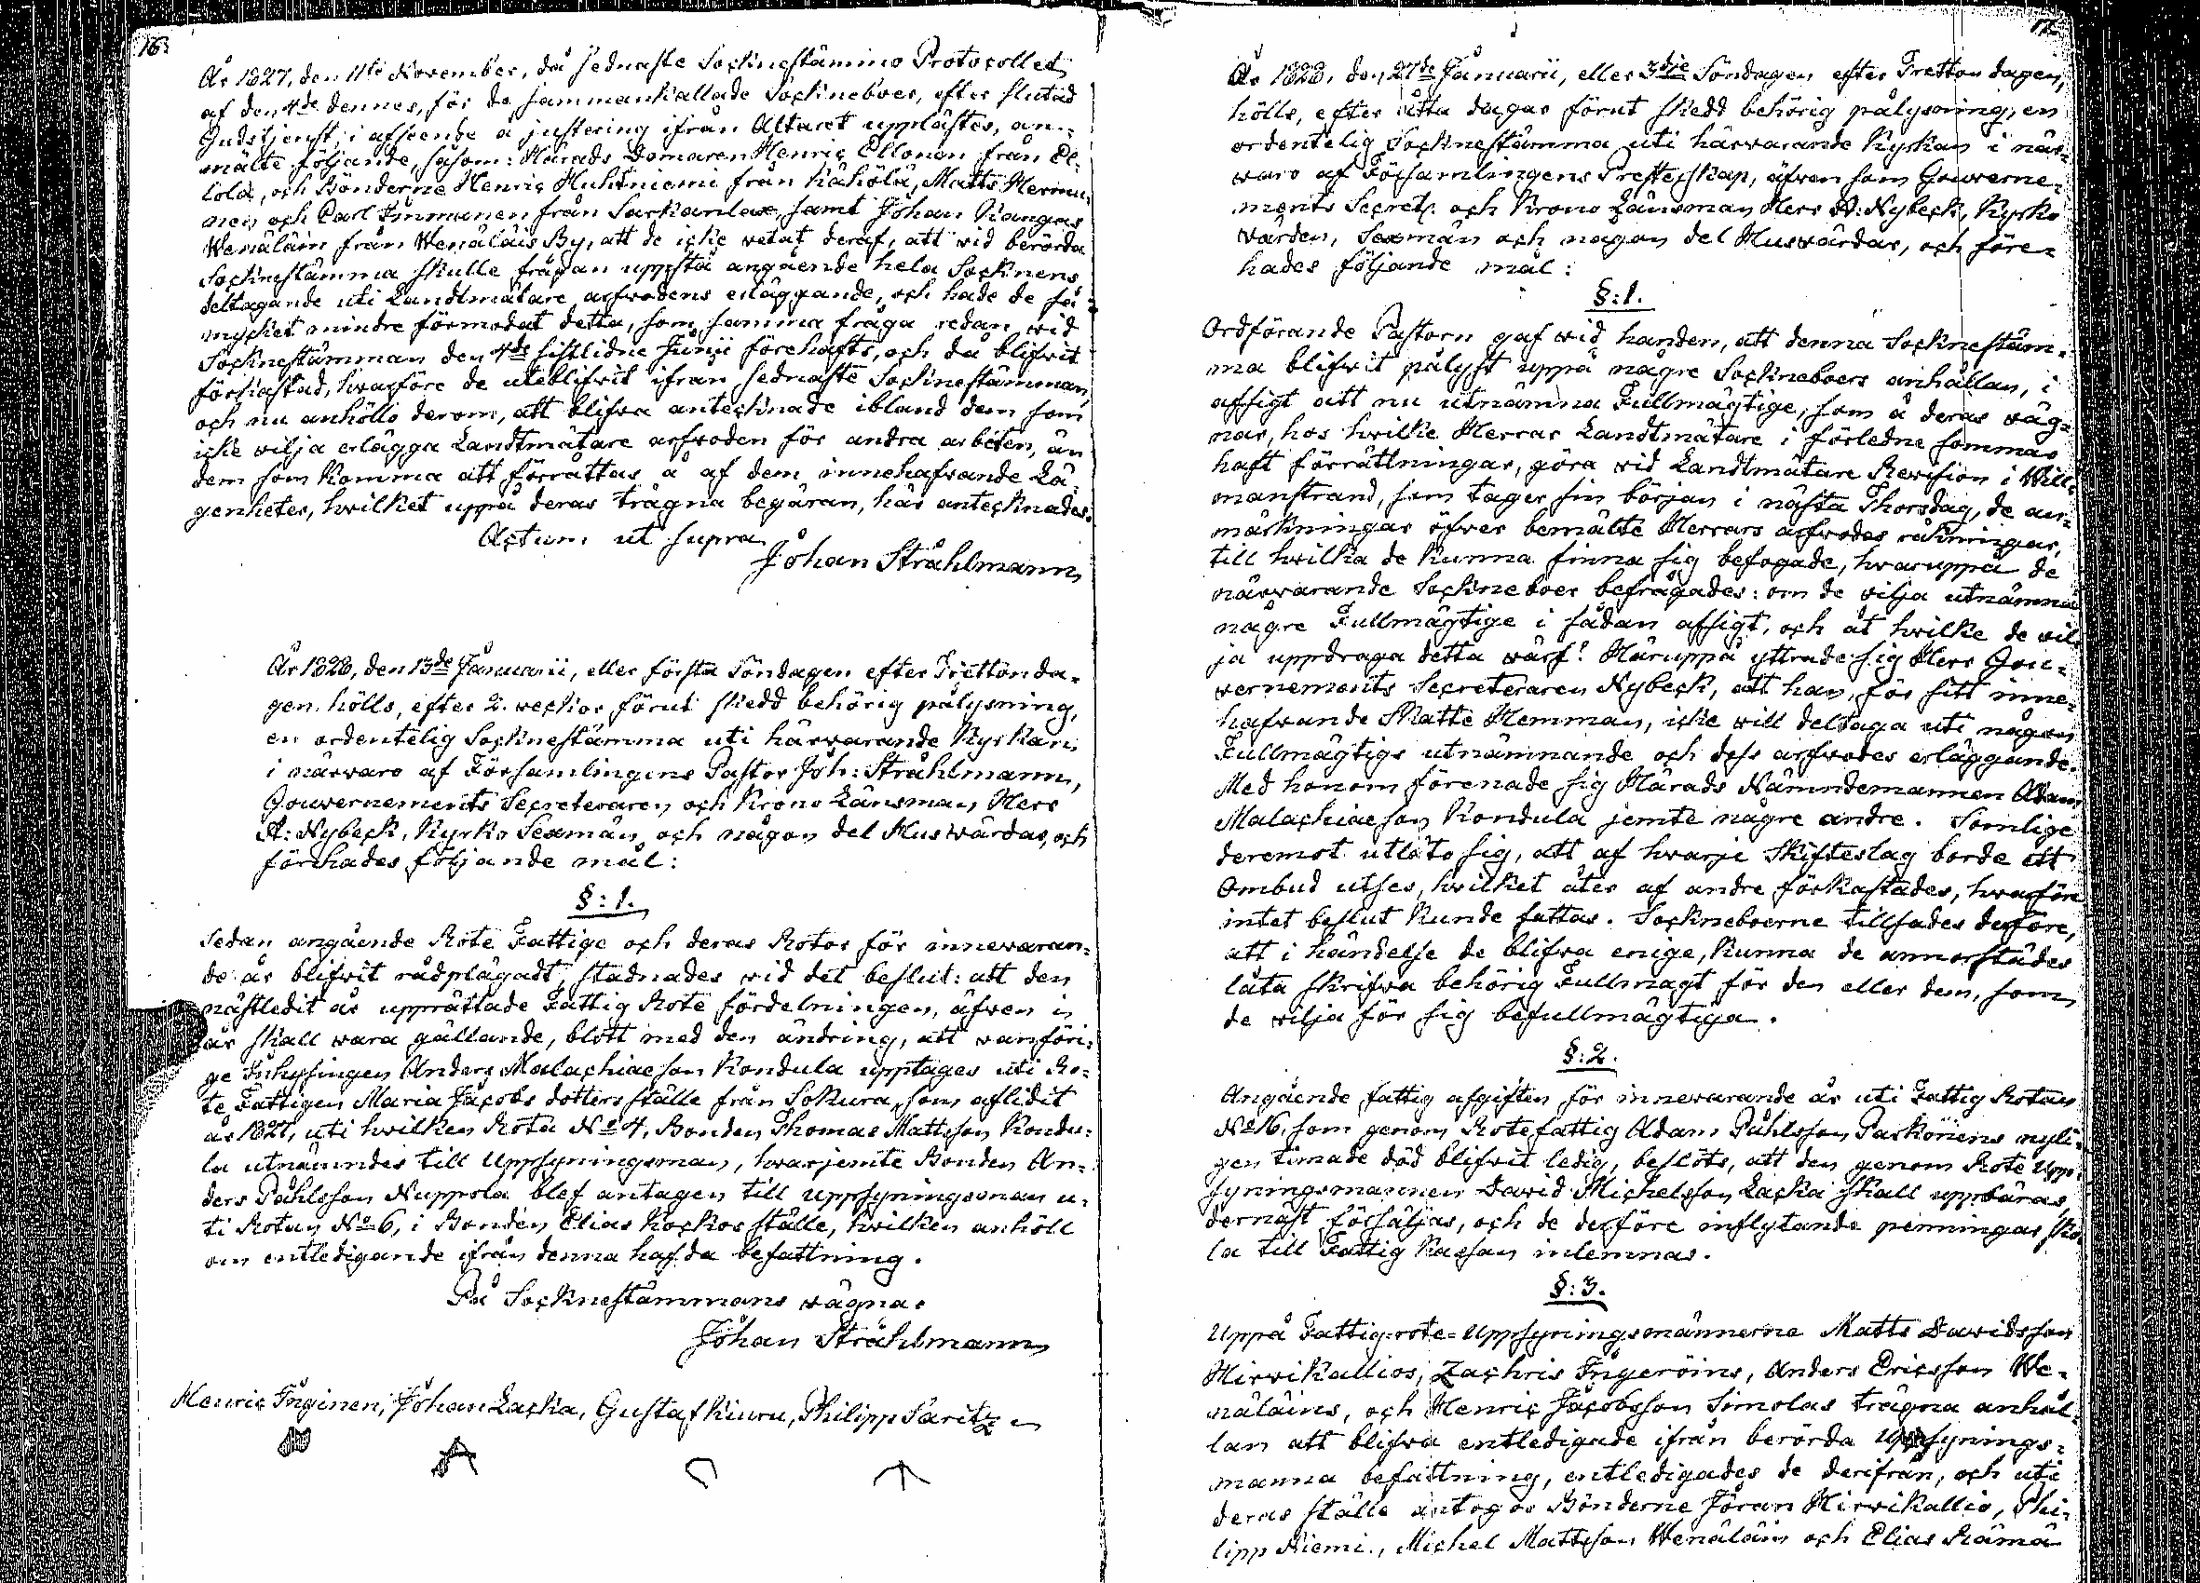 16.
År 1827, den 11te November, då sednaste Socknestämmo Protocollet
af den 4de dennes, för de sammankallade Sockneboer, efter slutad
Gudstjenst, i afseende å justering ifrån Altaret upplästes, an-
mälte följande, såsom: Härads Domaren Henric Ellonen från El-
lola, och Bönderne Henric Huhtniemi från Kähölä, Matts Hermu-
nen och Carl Immunen från Sarkanlax, samt Johan Kangas
Wenäläin från Wenäläis By, att de icke vetat deraf, att vid berörda
Socknestämma skulle frågan uppstå angående hela Socknens
deltagande uti Landtmätare arfvodens erläggande, och hade de så
mycket mindre förmodat detta, som samma fråga redan vid
Socknestämman den 4de sistlidne Junii förehafts, och då blifvit
förkastad, hvarföre de uteblifvit ifrån sednaste Sockne stämman,
och nu anhöllo derom, att blifva antecknade ibland dem som
icke vilja erlägga Landtmätare arfvoden för andra arbeten, än
dem som komma att förrättas å af dem innehafvande Lä-
genheter, hvilket uppå deras trägna begäran, här antecknades.
Actum ut supra
Johan Stråhlmann
År 1828, den 13de Januarii, eller första Söndagen efter Trettonda-
gen, hölls, efter 2. veckor förut skedd behörig pålysning,
en ordentelig Sockne stämma uti härvarande Kyrkan,
i närvaro af Församlingens Pastor Joh: Stråhlmann,
Gouvernements Secreteraren och Krono Länsman, Herr
A: Nybeck, Kyrko Sexmän, och någon del Huswärdar, och
förehades följande mål:
§: 1.
Sedan angående Rote Fattige och deras Rotor för innevaran-
de år blifvit rådplägadt, stadnades vid det beslut: att den
nästledit år upprättade Fattig Rote fördelningen, äfven i
år skall vara gällande, blott med den ändring, att vanföri-
ge Inhysingen Anders Malachiaeson Kondula upptages uti Ro-
te Fattigen Maria Jacobs dotters ställe från Sokura, som aflidit
år 1827, uti hvilken Rota No 4, Bonden Thomas Mattsson Kondu-
la utnämndes till Uppsyningsman, hvarjemte Bonden An-
ders Påhlsson Nuppola blef antagen till uppsyningsman u-
ti Rotan No 6, i Bonden Elias Kockos ställe, hvilken anhöll
om entledigande ifrån denna hafda befattning.
På Socknestämmans vägnar
Johan Stråhlmann
Henric Inginen, Johan Lacka, Gustaf Kiuru, Philipp Saritz
17.
År 1828, den 27de Januarii, eller 3dje Söndagen efter Tretton dagen,
hölls, efter åtta dagar förut skedd behörig pålysning, en
ordentelig Sockne stämma uti härvarande Kyrkan i när-
varo af Församlingens Presterskap, äfven som Gouverne-
ments Secret: och Krono Länsman Herr A: Nybeck, Kyrko
värden, Sexmän och någon del Huswärdar, och före-
hades följande mål:
§: 1.
Ordförande Pastorn gaf vid handen, att denna Socknestäm-
ma blifvit pålyst uppå någre Sockneboers anhållan, i
afsigt att nu utnämna Fullmägtige, som å deras väg-
nar, hos hvilke Herrar Landtmätare i förledne sommar
haft förrättningar, göra vid Landtmätare Revision i Will-
manstrand, som tager sin början i nästa Thorsdag, de an-
märkningar öfver bemälte Herrars arfvodes räkningar,
till hvilka de kunna finna sig befogade, hvaruppå de
närvarande Sockneboer befrågades: om de vilja utnämna
någre Fullmägtige i sådan afsigt, och åt hvilke de vil-
ja uppdraga detta värf? Häruppå yttrade sig Herr Gou-
vernements Secreteraren Nybeck, att han, för sitt inne-
hafvande Skatte Hemman, icke vill deltaga uti någon
Fullmägtigs utnämnande och dess arfvodes erläggande.
Med honom förenade sig Härads Nämndemannen Adam
Malachiaeson Kondula jemte någre andre. Somlige
deremot utläto sig, att af hvarje Skifteslag borde ett
Ombud utses, hvilket åter af andre förkastades, hvarföre
intet beslut kunde fattas. Sockneboerne tillsades derföre,
att i händelse de blifva enige, kunna de annorstädes
låta skrifva behörig Fullmagt för den eller dem, som
de vilja för sig befullmägtiga.
§: 2.
Angående fattig afgiften för innevarande år uti Fattig Rotan
No 16, som genom Rotefattig Adam Påhlsson Parkoinens nyli-
gen timade död blifvit ledig, beslöts, att den genom Rote Upp-
syningsmannen David Michelsson Lacka skall uppbäras,
dernäst försäljas, och de derföre inflytande penningar sko-
la till Fattig Kassan inlemnas.
§: 3.
Uppå Fattig-rote-Uppsyningsmännerne Matts Davidsson
Hirvikallios, Zachris Ingeröins, Anders Ericsson We-
näläins, och Henric Jacobsson Simolas trägna anhål-
lan att blifva entledigade ifrån berörda Uppsynings-
manna befattning, entledigades de derifrån, och uti
deras ställe antogos Bönderne Jöran Hirvikallio, Phi-
lipp Niemi, Michel Mattsson Wenäläin och Elias Rämä